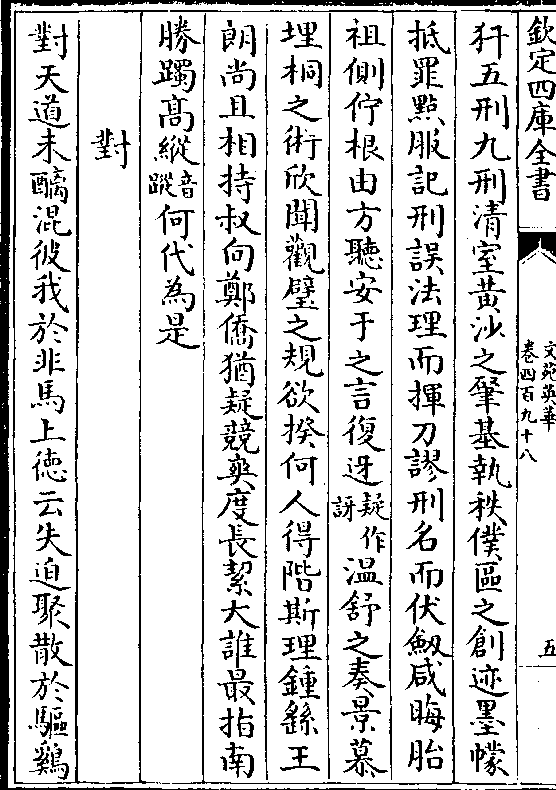 欽定四庫全書
文苑英華
卷四百九十八
五
犴五刑九刑清室黄沙之肇基執秩僕區之創迹墨幪
抵罪㸃服記刑誤法理而揮刀謬刑名而伏劔咸晦胎
祖側佇根由方聽安于之言復迓疑作訝温舒之奏景慕
埋桐之術欣聞觀璧之規欲揆何人得階斯理鍾繇王
朗尚且相持叔向鄭僑猶疑競爽度長絜大誰最指南
勝躅髙縱音蹤何代為是
對
對天道未醨混彼我於非馬上徳云失迫聚散於驅鷄